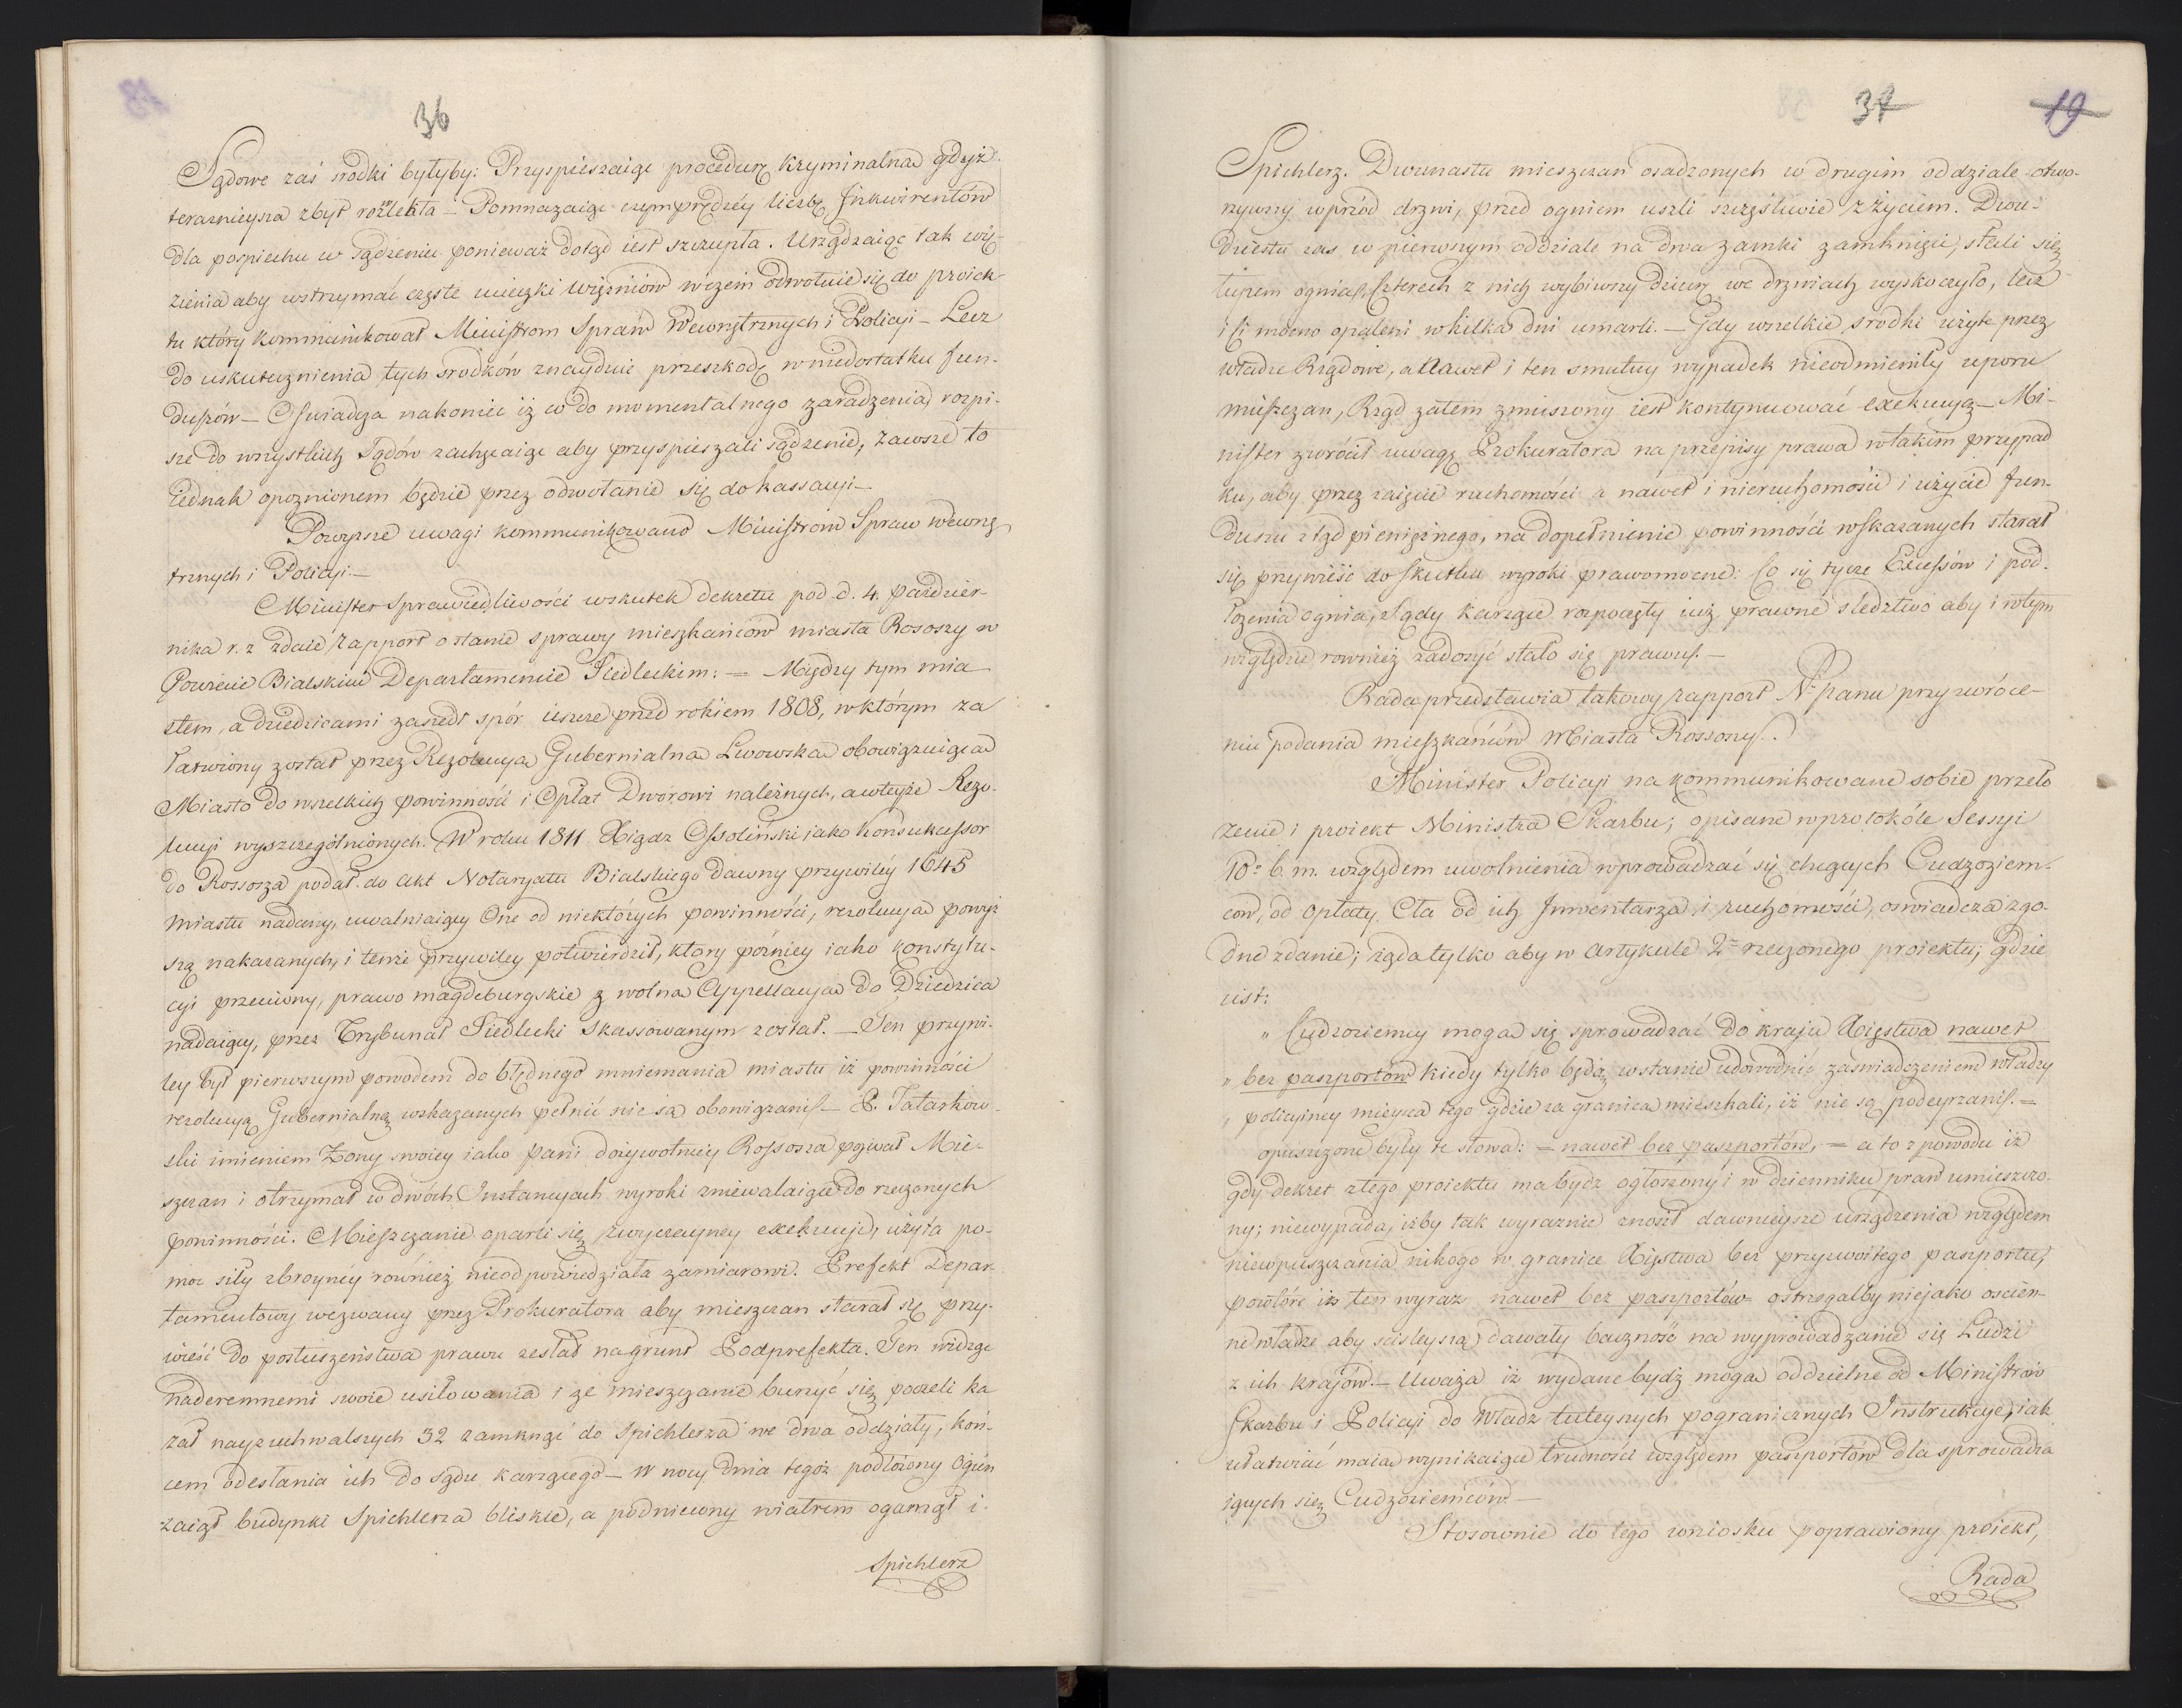 36
Sądowe zaś srodki byłyby: Przyspieszaiąc procedurę kryminalną gdyż
teraznieysza zbyt rozwlekła – Pomnażaiąc czemprędzéy liczbę Inkwirentów
dla pospiechu w sądzeniu ponieważ dotąd iest szczupła. Urządzaiąc tak wię-
zienia aby wstrzymać częste ucieczki więzniów wczem odwołuie się do proiek
tu który kommunikował Ministrom Spraw Wewnętrznych i Policyi – Lecz
do uskutecznienia tych srodków znayduie przeszkodę w niedostatku fun-
duszów – Oswiadcza nakoniec iż co do momentalnego zaradzenia rozpi-
sze do wszystkich Sądów zachęcaiąc aby przyspieszali sądzenie, zawsze to
iednak opoznionem będzie przez odwołanie się do kassacyi –
Powyzsze uwagi kommunikowano Ministrom Spraw Wewnę
trznych i Policyi. –
Minister Sprawiedliwości wskutek dekretu pod d. 4. pazdzier-
nika r. z zdaie rapport o stanie sprawy mieszkańców miasta Rososzy w
Powiecie Bialskim Departamencie Siedleckim: = Między tym mia
stem, a dziedzicami zaszedł spór ieszcze przed rokiem 1808, w którym za
łatwiony został przez Rezolucyą Gubernialną Lwowską obowiązuiącą
Miasto do wszelkich powinności i Opłat Dworowi należnych, a wteyże Rezo-
lucyi wyszczególnionych. W roku 1811 Xiądz Ossoliński iako konsukcessor
do Rossosza podał do akt Notaryatu Bialskiego dawny przywiléy 1645
miastu nadany, uwalniaiący One od niektórych powinności, rezolucyą powyż
szą nakazanych, i tenże przywiley potwierdził, ktory pózniey iako konstytu-
cyi przeciwny, prawo magdeburgskie z wolną Appellacyą do Dziedzica
nadaiący, przez Trybunał Siedlecki skassowanym został. – Ten przywi-
ley był pierwszym powodem do błędnego mniemania miastu iż powinności
rezolucyą Gubernialną wskazanych pełnić nie są obowiązani. – P. Tatarkow-
ski imieniem Żony swoiey iako pani dożywotniey Rossosza pozwał Mie-
szczan i otrzymał w dwóch Instancyach wyroki zniewalaiące do rzeczonych
powinności. Mieszczanie oparli się zwyczayney exekucyi, użyta po-
moc siły zbroyney również nieodpowiedziała zamiarowi. Prefekt Depar-
tamentowy wezwany przez Prokuratora aby mieszczan starał się przy-
wieść do posłuszeństwa prawu zesłał na grunt Podprefekta. Ten widząc
nadaremnemi swoie usiłowania i że mieszczanie burzyć się poczeli ka
zał nayzuchwalszych 32 zamknąć do Spichlerza we dwa oddziały, koń-
cem odesłania ich do sądu karzącego – W nocy dnia tegoż podłożony ogień
zaiął budynki Spichlerza bliskie, a podniecony wiatrem ogarnął i
Spichlerz
37 19
Spichlerz. Dwunastu mieszczan osadzonych w drugim oddziale otwo-
rzywszy wprzód drzwi, przed ogniem uszli szczęśliwie z życiem. Dwu-
dziestu zas w pierwszym oddziale na dwa zamki zamknięci, stali się
łupem ognia. Czterech z nich wybiwszy dziurę we drzwiach wyskoczyło, lecz
i ci mocno opaleni w kilka dni umarli. – Gdy wszelkie srodki użyte przez
władze Rządowe, a nawet i ten smutny wypadek nieodmieniły uporu
mieszczan, Rząd zatem zmuszony iest kontynuować exekucyą – Mi-
nister zwrócił uwagę Prokuratora na przepisy prawa w takim przypad
ku, aby przez zaięcie ruchomości a nawet i nieruchomości i użycie fun-
duszu ztąd pieniężnego, na dopełnienie powinności wskazanych starał
się przywieść do skutku wyroki prawomocne: Co się tycze Excessów i pod-
łożenia ognia, Sądy karzące rozpoczęły iuż prawne sledztwo aby i w tym
względzie rowniéż zadosyć stało się prawu. –
Rada przedstawia takowy rapport N. Panu przy zwróce-
niu podania mieszkańców Miasta Rossosz.
Minister Policyi na kommunikowane sobie przeło
żenie i proiekt Ministra Skarbu; opisane w protokóle Sessyi
10. b. m. względem uwolnienia wprowadzać się chcących Cudzoziem-
ców, od opłaty Cła od ich Inwentarza i ruchomości, oswiadcza zgo-
dne zdanie; żąda tylko aby w artykule 2. rzeczonego proiektu, gdzie
iest:
„ Cudzoziemcy mogą się sprowadzać do kraju Xięstwa nawet
„ bez paszportów kiedy tylko będą w stanie udowodnić zaswiadczeniem władzy
„ policyiney mieysca tego gdzie za granicą mieszkali, iż nie są podeyrzani. =
opuszczone były te słowa: = nawet bez paszportów, = a to z powodu iż
gdy dekret z tego proiektu ma bydz ogłoszony i w dzienniku praw umieszczo-
ny; niewypada, iżby tak wyraznie znosił dawnieysze urządzenia względem
niewpuszczania nikogo w granice Xięstwa bez przyzwoitego paszportu,
powtóre iż ten wyraz nawet bez paszportów ostrzegałby niejako oscien-
ne władze aby scisleyszą dawały baczność na wyprowadzanie się Ludzi
z ich krajów. – Uważa iż wydane bydz mogą oddzielne od Ministrów
Skarbu i Policyi do Władz tuteyszych pogranicznych Instrukcye, iak
ułatwiać maią wynikaiące trudności względem paszportów dla sprowadza
iących się Cudzoziemców. –
Stosownie do tego wniosku poprawiony proiekt,
Rada